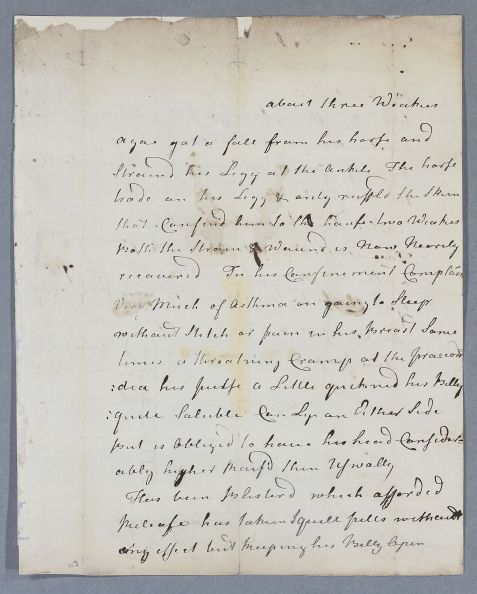 about three Weakes
agae got a fall from his horse and
Straind his Legg at the Ankle The horse
trade on his Legg & only ruffld the Skin
that Confind him to the house two Weakes
both the Strain & Wound is Now Neerly
recovered In his Confinement Complain
Very Much of Asthma on going to Sleep
without Stitch or pain in his Breast Some
times a threatning Cramp at the Præcor
:dia his pulse a Little quickned his Belly
:quite Saluble Can Ly on Either Side
but is Obliged to have his head Consider
ably higher Raisd then Uswally
Has been Blisterd which afforded
Releafe has taken Squill pills without
any effect but keeping his Belly Open